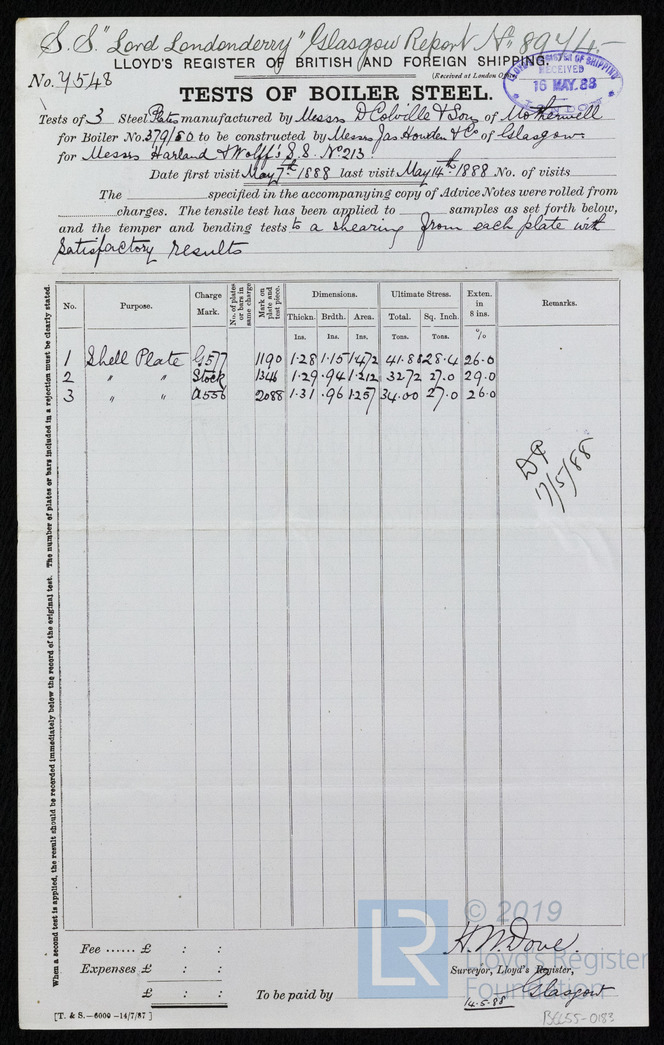 S.S. "Lord Londonderry" Glasgow Report No. 8974
LLOYD'S REGISTER OF BRITISH AND FOREIGN SHIPPING.
No. 4548
(Received at London Office
LLOYD'S REGISTER OF SHIPPING
RECEIVED
16 MAY. 88
LONDON
TESTS OF BOILER STEEL.
Tests of 3 Steel Plates manufactured by Messrs D Colville & Sons of Motherwell
for Boiler No. 379/80 to be constructed by Messrs Jas Howden & Co of Glasgow
for Messrs Harland & Wolff's S.S. No 213.
Date first visit May 7th 1888 last visit May 14th 1888 No. of visits
The specified in the accompanying copy of Advice Notes were rolled from
charges. The tensile test has been applied to samples as set forth below,
and the temper and bending tests to a shearing from each plate with
satisfactory results
When a second test is applied, the result should be recorded immediately below the record of the original test. The number of plates or bars included in a rejection must be clearly stated.
No. Purpose. Charge Mark. No. of plates or bars in same charge Mark on plate and test piece. Dimensions. Ultimate Stress. Exten. in 8 ins. Remarks.
Thickn. Brdth. Area. Total. Sq. Inch.
Ins. Ins. Ins. Tons. Tons. %
1 Shell Plate G577 1190 1.28 1.15 1.472 41.88 28.4 26.0
2 " " Stock 1346 1.29 .94 1.212 32.72 27.0 29.0
3 " " A556 2088 1.31 .96 1.257 34.00 27.0 26.0
17/5/88
Fee ...... £ : :
Expenses £ : :
£ : :
To be paid by
H. W. Dove.
Surveyor, Lloyd's Register,
Glasgow
14.5.88
[T. & S.—6000 —14/7/87]
BLL55-0183
LR
© 2019
Lloyd's Register
Foundation